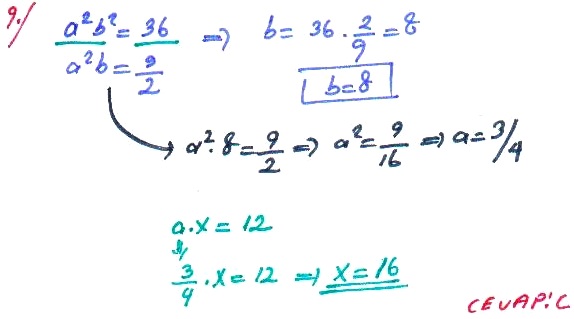 9./ a²b² = 36 ⇒ b = 36 · 2/9 = 8
a²b = 9/2 b = 8
→ a² · 8 = 9/2 ⇒ a² = 9/16 ⇒ a = 3/4
a · x = 12
3/4 · x = 12 ⇒ x = 16
CEVAP: C